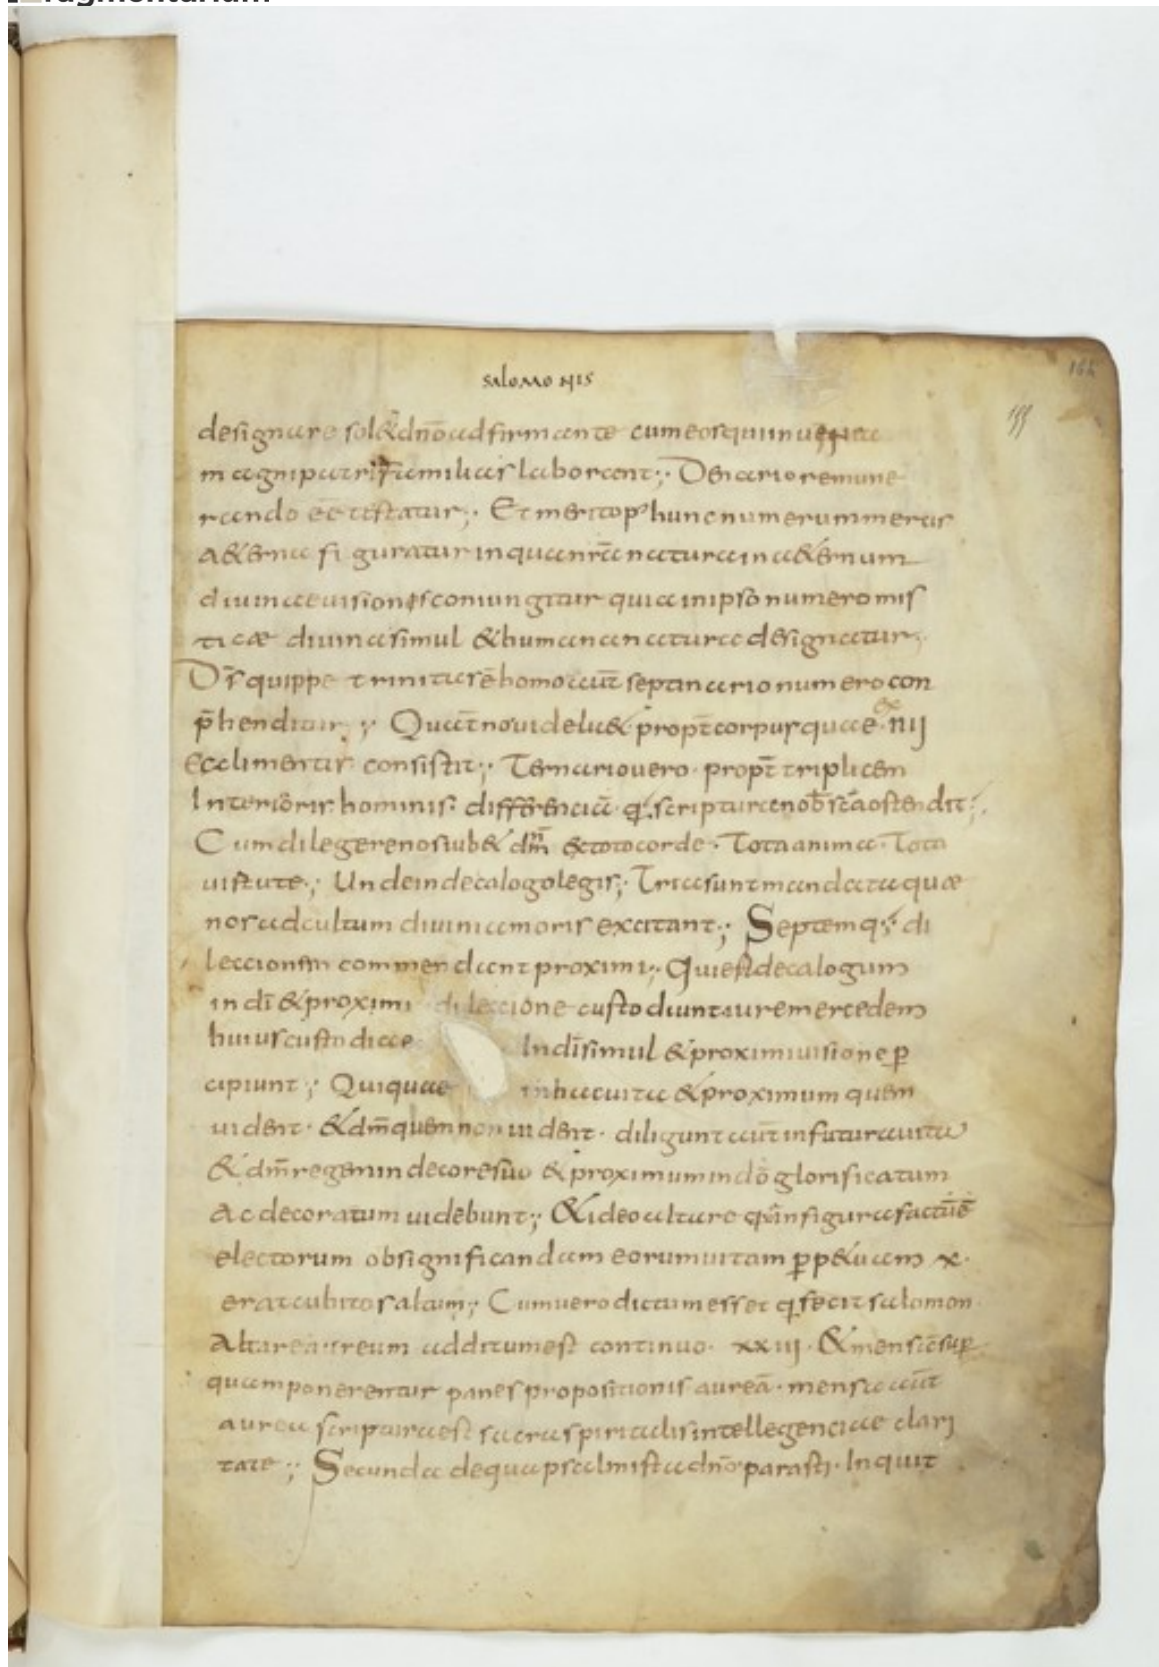 salomonis
designare sol& dn̄o adfirmante cum eos qui in uinea
magni patris familias laborant;· Denario remune
rando e͞e testatur;· Et merito p hunc numerum merces
a&erna figuratur in qua nr̄a natura in a&ernum
diuinae uisionis coniungitur quia in ipso numero mis
ticae diuina simul & humana natura designatur;·
Dī quippe trinitas ē homo aut̄ septinario numero con
p̄henditur;· Quat̄no uidelic& propt̄ corpus quae ex iiij
Eclimentis consistit;· Ternario uero · propt̄ triplicem
Interioris hominis · differenciā · q; scriptura nob̄ sc̄a ostendit;·
Cum dilegere nos iub& dn̄m ex toto corde · Tota anima · Tota
uirtute;· Unde in decalogo legis;· Tria sunt mandata quae
nos ad cultum diuini amoris excitant;· Septem q; di
leccionem commendant proximi;· Qui est decalogum
in dī & proximi dileccione custodiunt iure mercedem
huius custodiae In dī simul & proximi uisione p̱
cipiunt;· Qui quae in hac uita & proximum quem
uident · & dm̄ quem non uident · diligunt aut̄ in futura uita
& dm̄ regem in decore suo & proximum in dō glorificatum
Ac decoratum uidebunt;· & ideo altare q in figura factū ē
electorum ob significandam eorum uitam p̱p&uam x·
erat cubitos altum;· Cum uero dictum esset q; fecit salomon
Altare aureum additum est continuo · xxiij · & mensā sup̱
quam ponerentur panes propositionis aureā · mensa aut̄
aurea scriptura est sacra spiritalis intellegenciae clari
tate;· Secunda de qua psalmista dn̄o parasti · Inquit